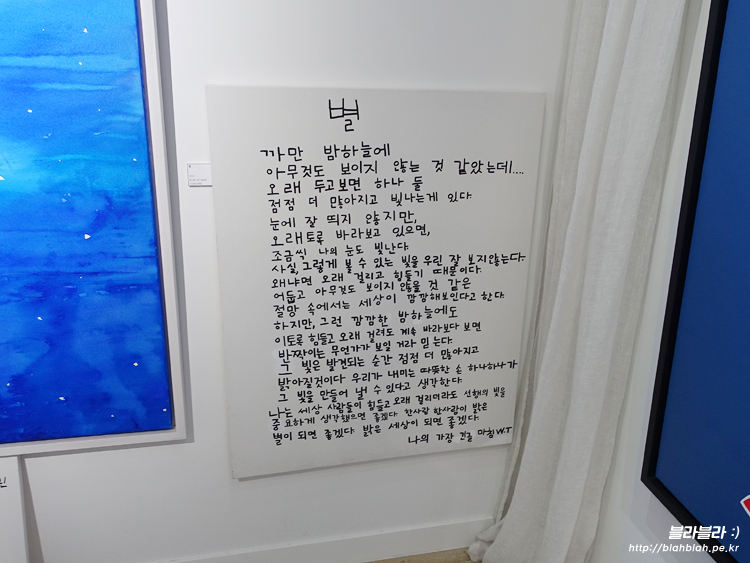 별
까만 밤하늘에
아무것도 보이지 않는 것 같았는데....
오래 두고보면 하나 둘
점점 더 많아지고 빛나는게 있다.
눈에 잘 띄지 않지만,
오래토록 바라보고 있으면,
조금씩 나의 눈도 빛난다.
사실, 그렇게 볼 수 있는 빛을 우린 잘 보지않는다.
왜냐면 오래 걸리고 힘들기 때문이다.
어둡고 아무것도 보이지 않을 것 같은
절망 속에서는 세상이 깜깜해보인다고 한다.
하지만, 그런 깜깜한 밤하늘에도
이토록 힘들고 오래 걸려도 계속 바라보다 보면
반짝이는 무언가가 보일 거라 믿는다.
그 빛은 발견되는 순간 점점 더 많아지고
밝아질것이다 우리가 내미는 따뜻한 손 하나하나가
그 빛을 만들어 낼 수 있다고 생각한다.
나는 세상 사람들이 힘들고 오래 걸리더라도 선행의 빛을
중요하게 생각했으면 좋겠다 한사람 한사람이 밝은
별이 되면 좋겠다. 밝은 세상이 되면 좋겠다.
나의 가장 긴글 마침 W.T
린
블라블라 :)
http://blahblah.pe.kr